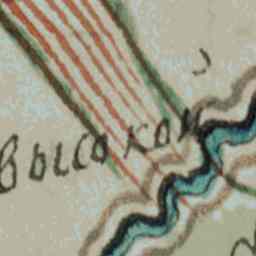 высокои